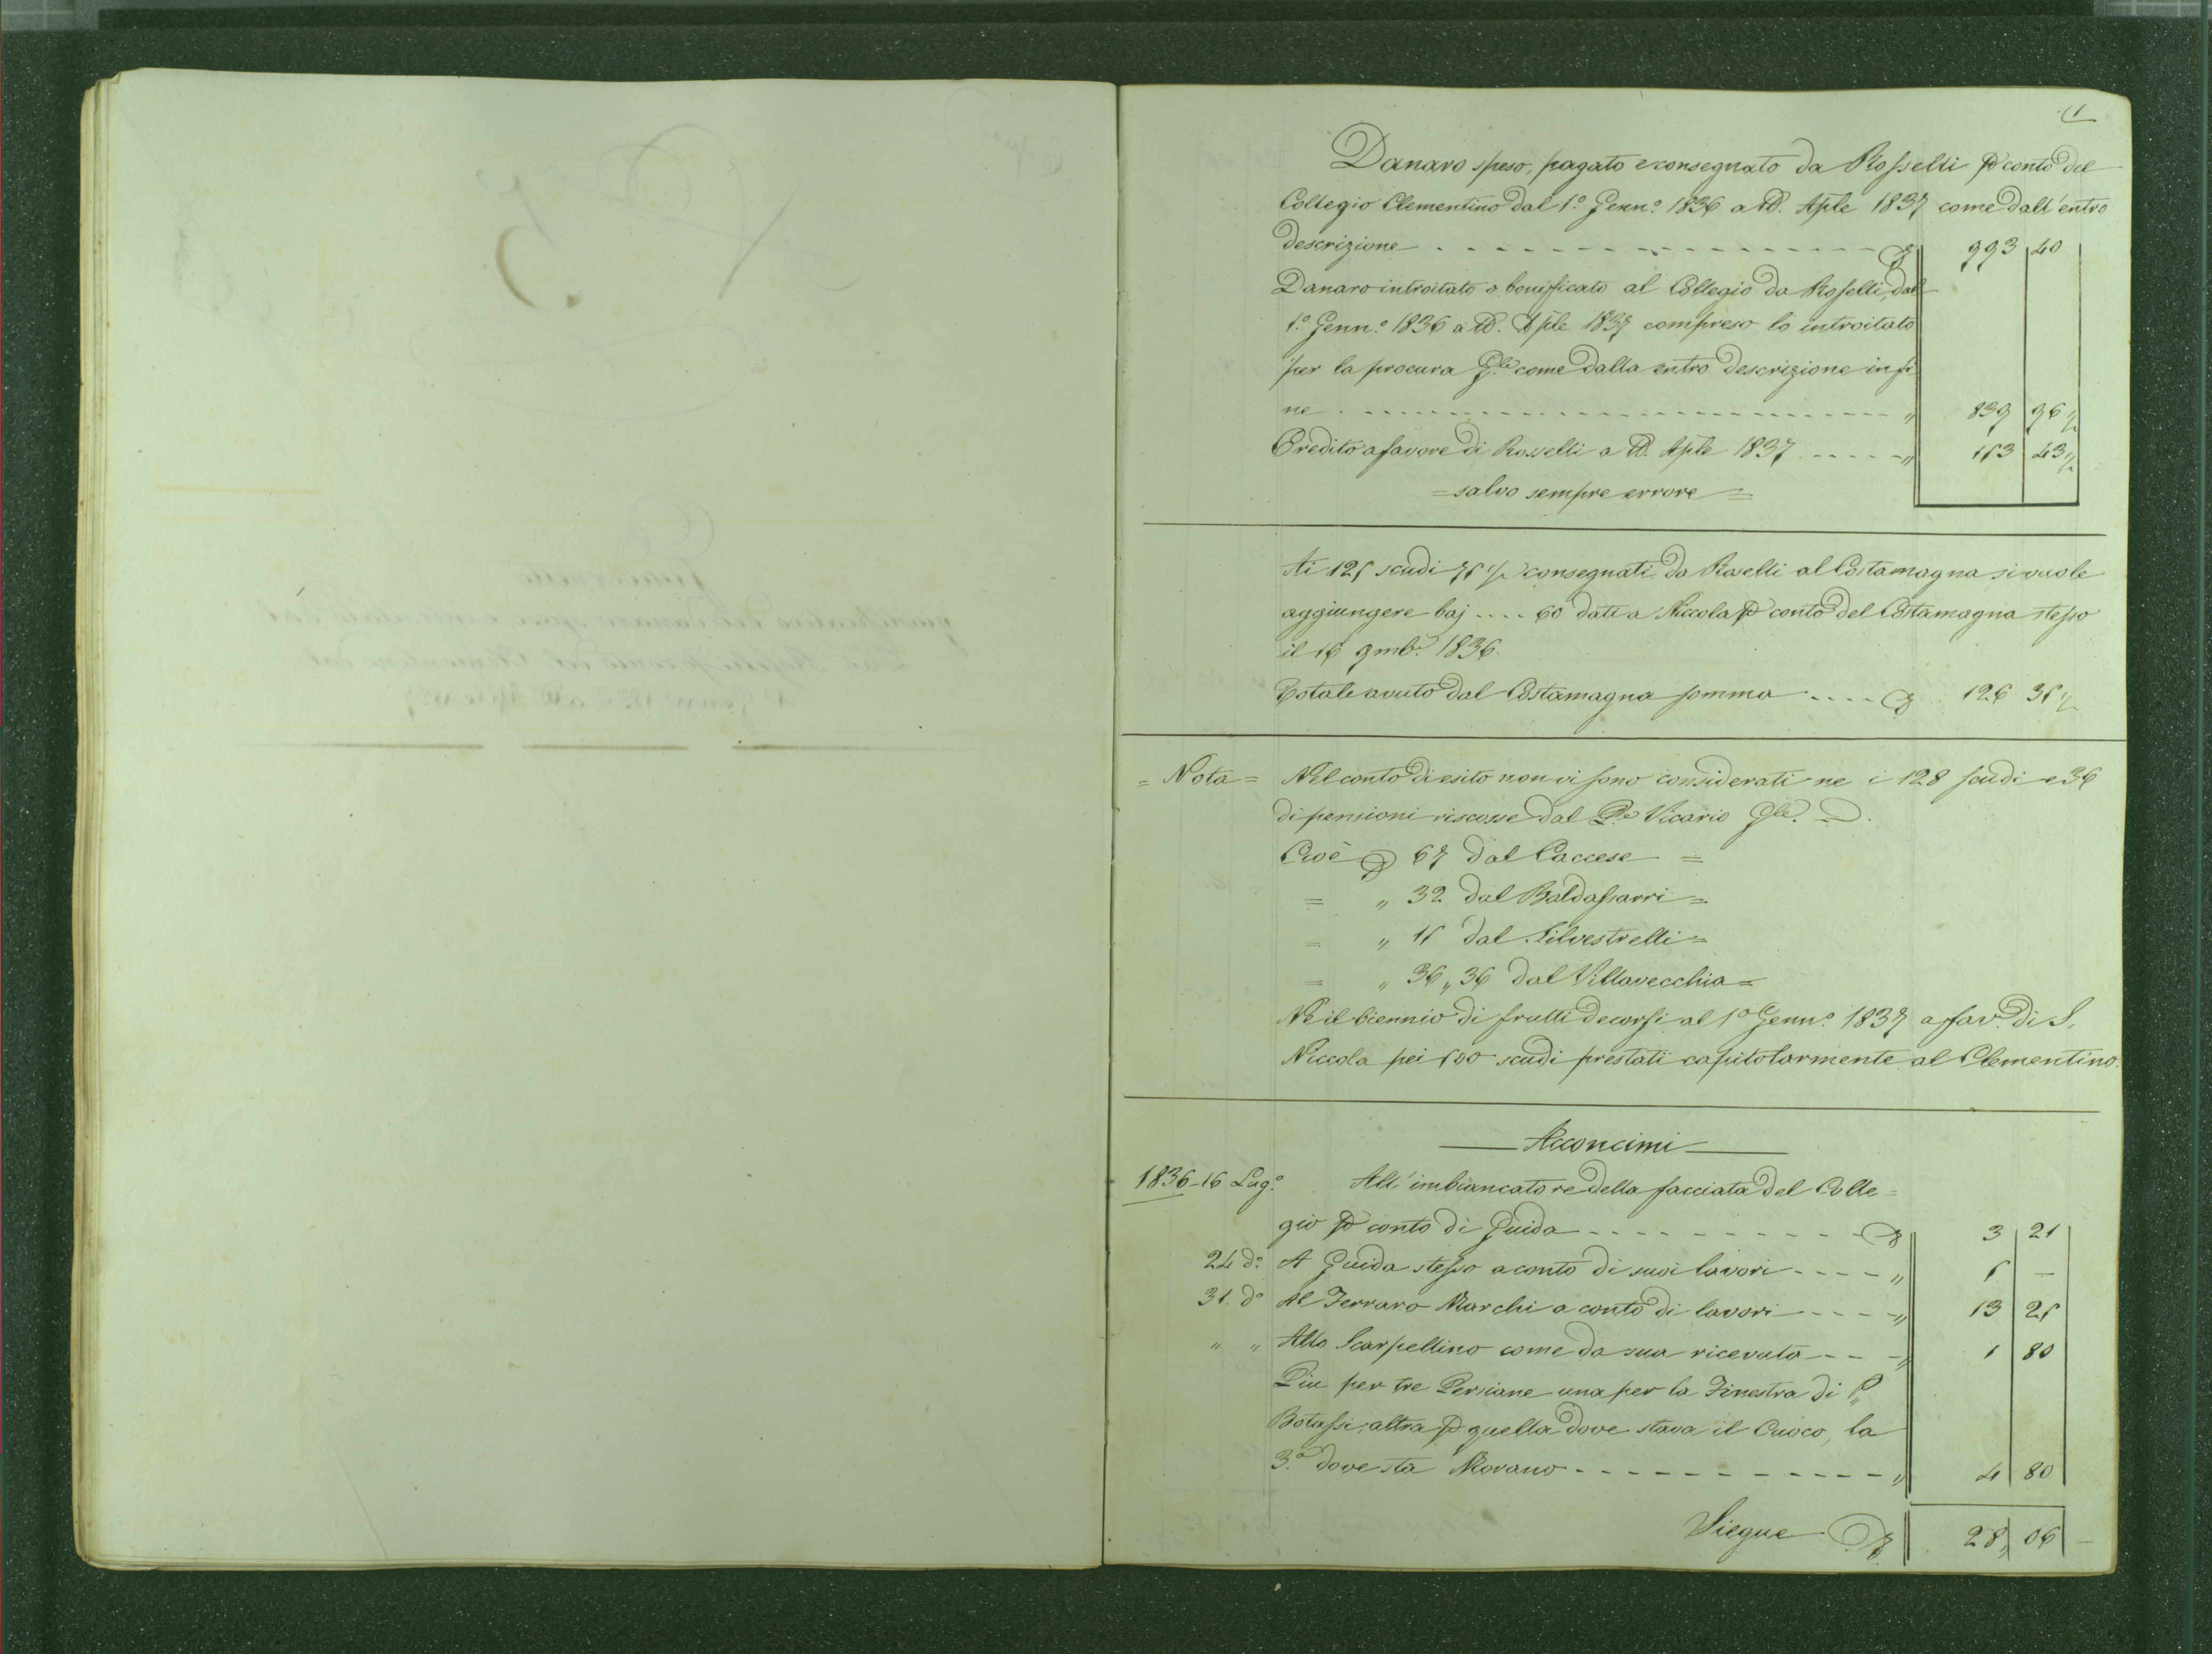 1
Danaro speso, pagato e consegnato da Rosselli p conto del
Collegio Clementino dal 1.° Genn.° 1836 a tt. Aple 1837 come dall'entro
descrizione - - - - - 993 40
Danaro introitato o bonificato al Collegio da Rosselli, dal
1.° Genn.° 1836 a tt. Aple 1837 compreso lo introitato
per la procura Gle come dalla entro descrizione in fi
ne - - - - - „ 839 96 ½
Credito a favore di Rosselli a tt. Aple 1837 - - - - „ 153 43 ½
= salvo sempre errore =
Ai 125 scudi 75 ½ consegnati da Roselli al Costamagna si vuole
aggiungere baj .... 60 dati a Niccola p conto del Costamagna stesso
il 16 9mbr. 1836.
Totale avuto dal Costamagna somma .... 126 35 ½
= Nota = Nel conto di esito non vi sono considerati ne i 128 scudi e 36
di pensioni riscosse dal P.e Vicario Gle.
Cioè 67 dal Caccese =
= „ 32 dal Baldassarri =
= „ 15 dal Silvestrelli =
= „ 36„36 dal Villavecchia =
Ne il biennio di frutti decorsi al 1.° Genn.° 1837 a fav. di S.
Niccola pei 500 scudi prestati capitolarmente al Clementino.
Acconcimi
1836 - 16 Lug.° All'imbiancatore della facciata del Colle=
gio p conto di Guida - - - - - 3 21
24 d.° A Guida stesso a conto di suoi lavori - - - - „ 5 —
31. d.° Al Ferraro Marchi a conto di lavori - - - - „ 13 25
„ „ Allo Scarpellino come da sua ricevuta - - - „ 1 80
Piu per tre Persiane una per la Finestra di P.
Botassi, altra p quella dove stava il Cuoco, la
3.ª dove sta Morano - - - - - „ 4 80
Siegue 28„ 06